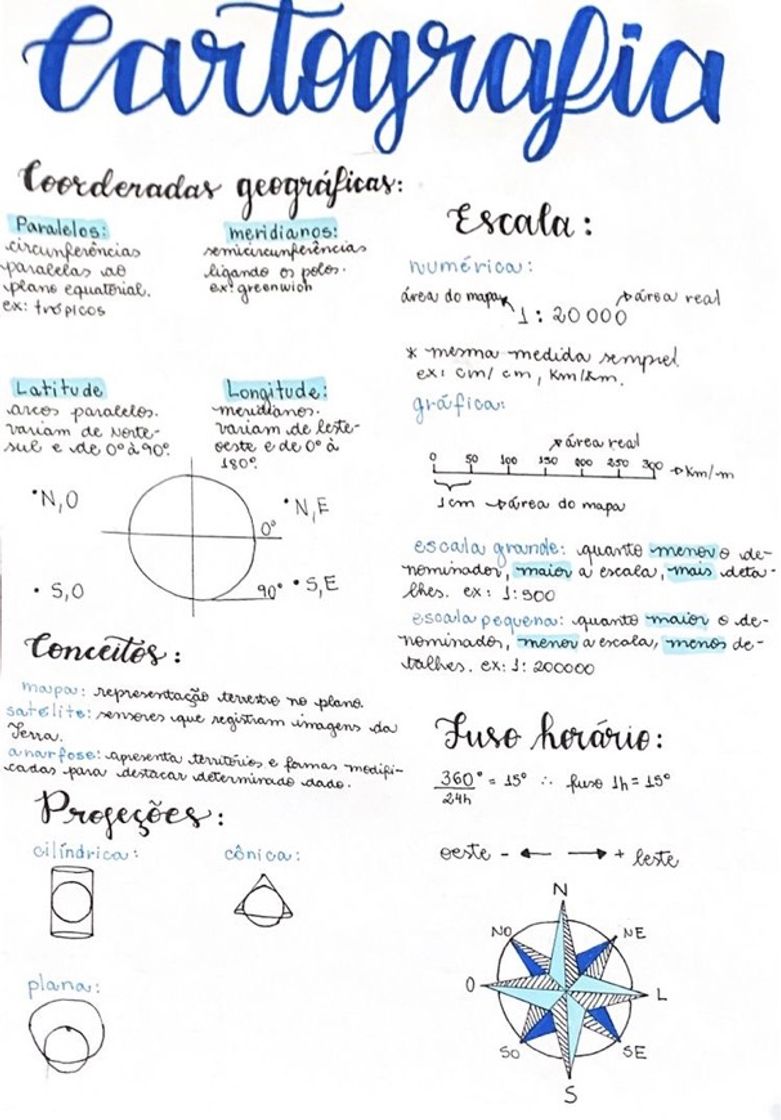 Cartografia
Coorderadas geográficas:
Paralelos:
circunferências
paralelas ao
plano equatorial.
ex: trópicos
meridianos:
semicircunferências
ligando os polos.
ex: greenwich
Latitude
arcos paralelos.
variam de Norte-
sul e de 0° à 90°.
Longitude:
meridianos.
variam de leste-
oeste e de 0° à
180°.
•N,O
•N,E
0°
• S,O
90°
• S,E
Conceitos:
mapa: representação terrestre no plano.
satélite: sensores que registram imagens da
Terra.
anarfose: apresenta territórios e formas modifi-
cadas para destacar determinado dado.
Projeções:
cilíndrica:
cônica:
plana:
Escala:
numérica:
área do mapa
área real
1 : 20 000
* mesma medida sempre!
ex: cm/cm, Km/Km.
gráfica:
área real
0 50 100 150 200 250 300 Km/m
1cm área do mapa
escala grande: quanto menor o de-
nominador, maior a escala, mais deta-
lhes. ex: 1:500
escala pequena: quanto maior o de-
nominador, menor a escala, menos de-
talhes. ex: 1: 200000
Fuso horário:
360° = 15° ∴ fuso 1h = 15°
24h
oeste - ← → + leste
N
NO
NE
O
L
SO
SE
S